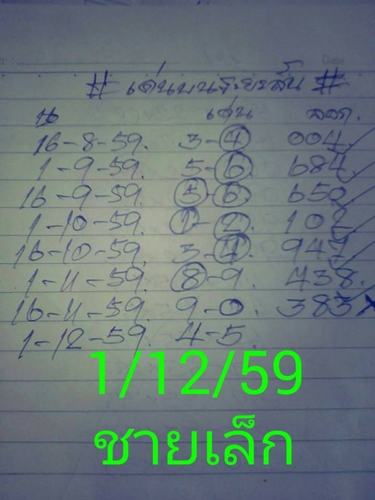 # เด่นบนระยะสั้น #
น เด่น ออก
16-8-59. 3-4 004
1-9-59. 5-6 684
16-9-59. 5-6 650
1-10-59. 1-2 102
16-10-59. 3-4 947
1-11-59. 8-9. 438.
16-11-59. 9-0. 383x
1-12-59. 4-5.
1/12/59
ชายเล็ก